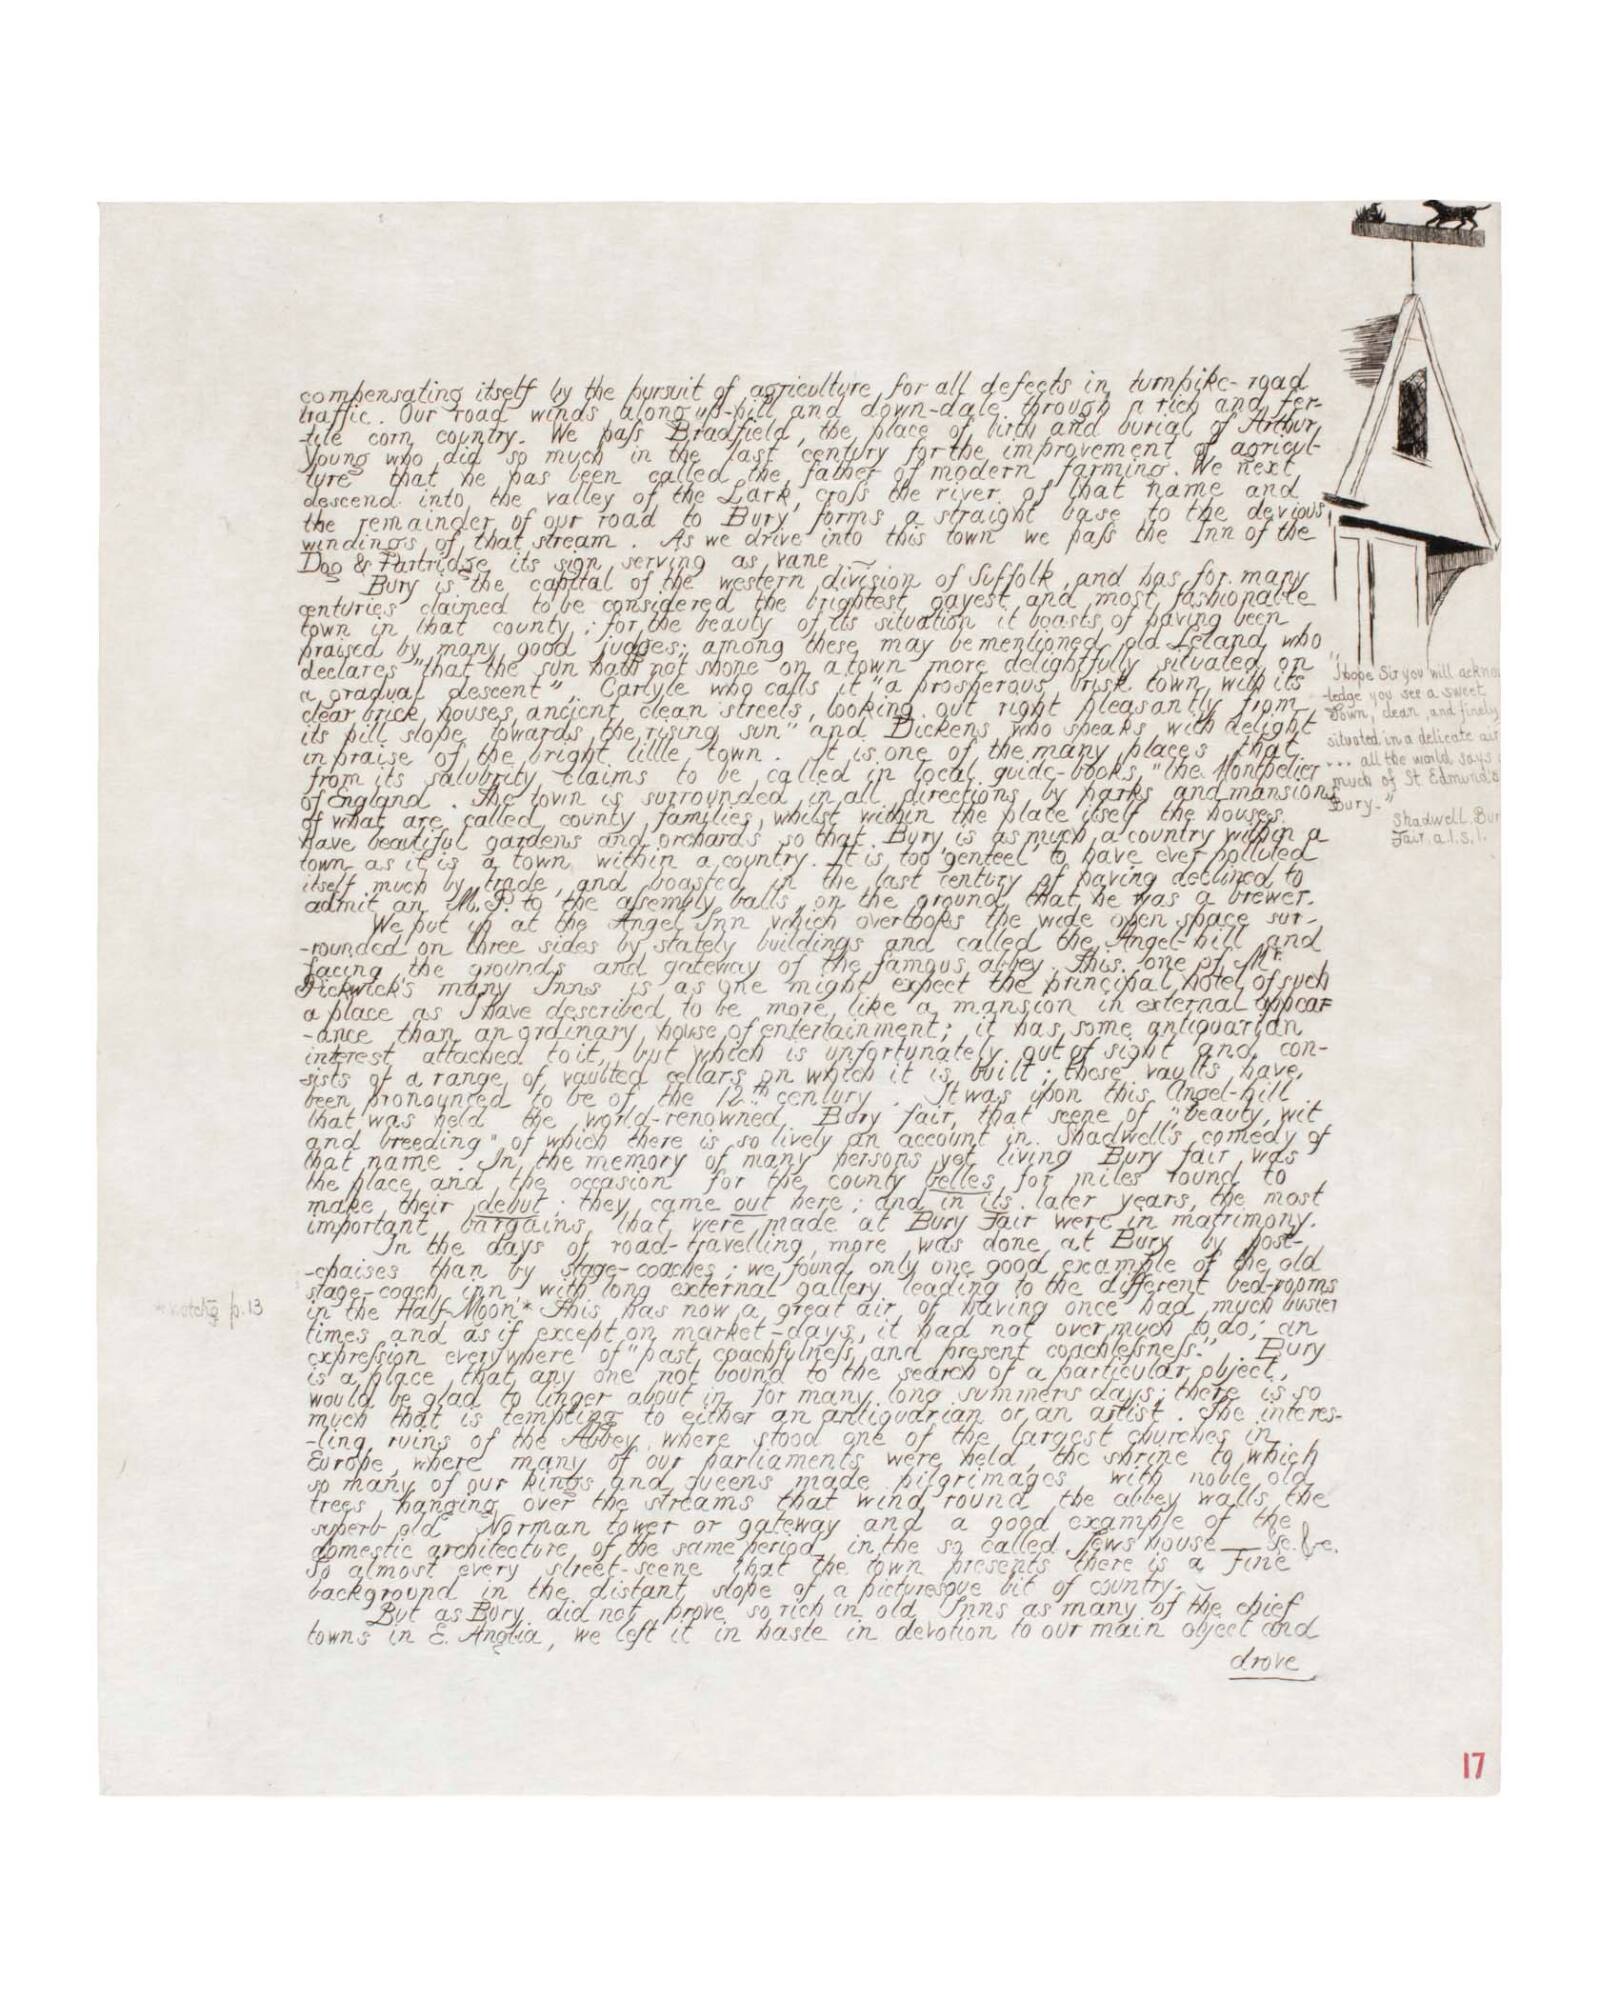 compensating itself by the pursuit of agriculture, for all defects in turnpike-road
traffic. Our road winds along up-hill and down-dale through a rich and fer-
-tile corn country. We pass Bradfield, the place of birth and burial of Arthur
Young who did so much in the last century for the improvement of agricul-
ture that he has been called the father of modern farming. We next
descend into the valley of the Lark, cross the river of that name and
the remainder of our road to Bury forms a straight base to the devious
windings of that stream. As we drive into this town we pass the Inn of the
Dog & Partridge its sign serving as vane
Bury is the capital of the western division of Suffolk, and has for many
centuries claimed to be considered the brightest, gayest and most fashionable
town in that county; for the beauty of its situation it boasts of having been
praised by many good judges; among these may be mentioned old Leland who
declares "that the sun hath not shone on a town more delightfully situated on
a gradual descent", Carlyle who calls it "a prosperous brisk town with its
clear brick houses, ancient clean streets, looking out right pleasantly from
its hill slope towards the rising sun" and Dickens who speaks with delight
in praise of the bright little town. It is one of the many places that
from its salubrity claims to be called in local guide-books "the Montpelier
of England. The town is surrounded in all directions by parks and mansions
of what are called county families, whilst within the place itself the houses
have beautiful gardens and orchards so that Bury is as much a country within a
town as it is a town within a country. It is too "genteel" to have ever polluted
itself much by trade, and boasted in the last century of having declined to
admit an M.P. to the assembly balls on the ground that he was a brewer.
We put up at the Angel Inn which overlooks the wide open space sur-
-rounded on three sides by stately buildings and called the Angel-hill and
facing the grounds and gateway of the famous abbey. This one of Mr.
Pickwick's many Inns is as one might expect the principal hotel of such
a place as I have described to be more like a mansion in external appear
-ance than an ordinary house of entertainment; it has some antiquarian
interest attached to it, but which is unfortunately out of sight and con-
-sists of a range of vaulted cellars on which it is built; those vaults have
been pronounced to be of the 12th century. It was upon this Angel-hill
that was held the world-renowned Bury fair, that scene of "beauty, wit
and breeding" of which there is so lively an account in Shadwell's comedy of
that name. In the memory of many persons yet living Bury fair was
the place and the occasion for the county belles for miles round to
make their debut; they came out here; and in its later years, the most
important bargains that were made at Bury Fair were in matrimony.
In the days of road-travelling more was done at Bury by post-
-chaises than by stage-coaches; we found only one good example of the old
stage-coach inn with long external gallery leading to the different bed-rooms
in the Half-Moon.* This has now a great air of having once had much busier
times and as if except on market-days, it had not over much to do; an
expression everywhere of "past coachfulness and present coachlessness." Bury
is a place that any one not bound to the search of a particular object,
would be glad to linger about in for many long summers days; there is so
much that is tempting to either an antiquarian or an artist. The interes-
-ting ruins of the Abbey where stood one of the largest churches in
Europe, where many of our parliaments were held, the shrine to which
so many of our kings and queens made pilgrimages, with noble old
trees hanging over the streams that wind round the abbey walls the
superb old Norman tower or gateway and a good example of the
domestic architecture of the same period in the so called Jews house — &c. &c.
So almost every street-scene that the town presents there is a fine
background in the distant slope of a picturesque bit of country.
But as Bury did not prove so rich in old Inns as many of the chief
towns in E. Anglia, we left it in haste in devotion to our main object and
drove
"I hope Sir you will acknow
-ledge you see a sweet
Town, clean, and finely
situated in a delicate air
... all the world says
much of St Edmund's
Bury."
Shadwell. Bur
Fair. a.1.s.1.
p.13
17